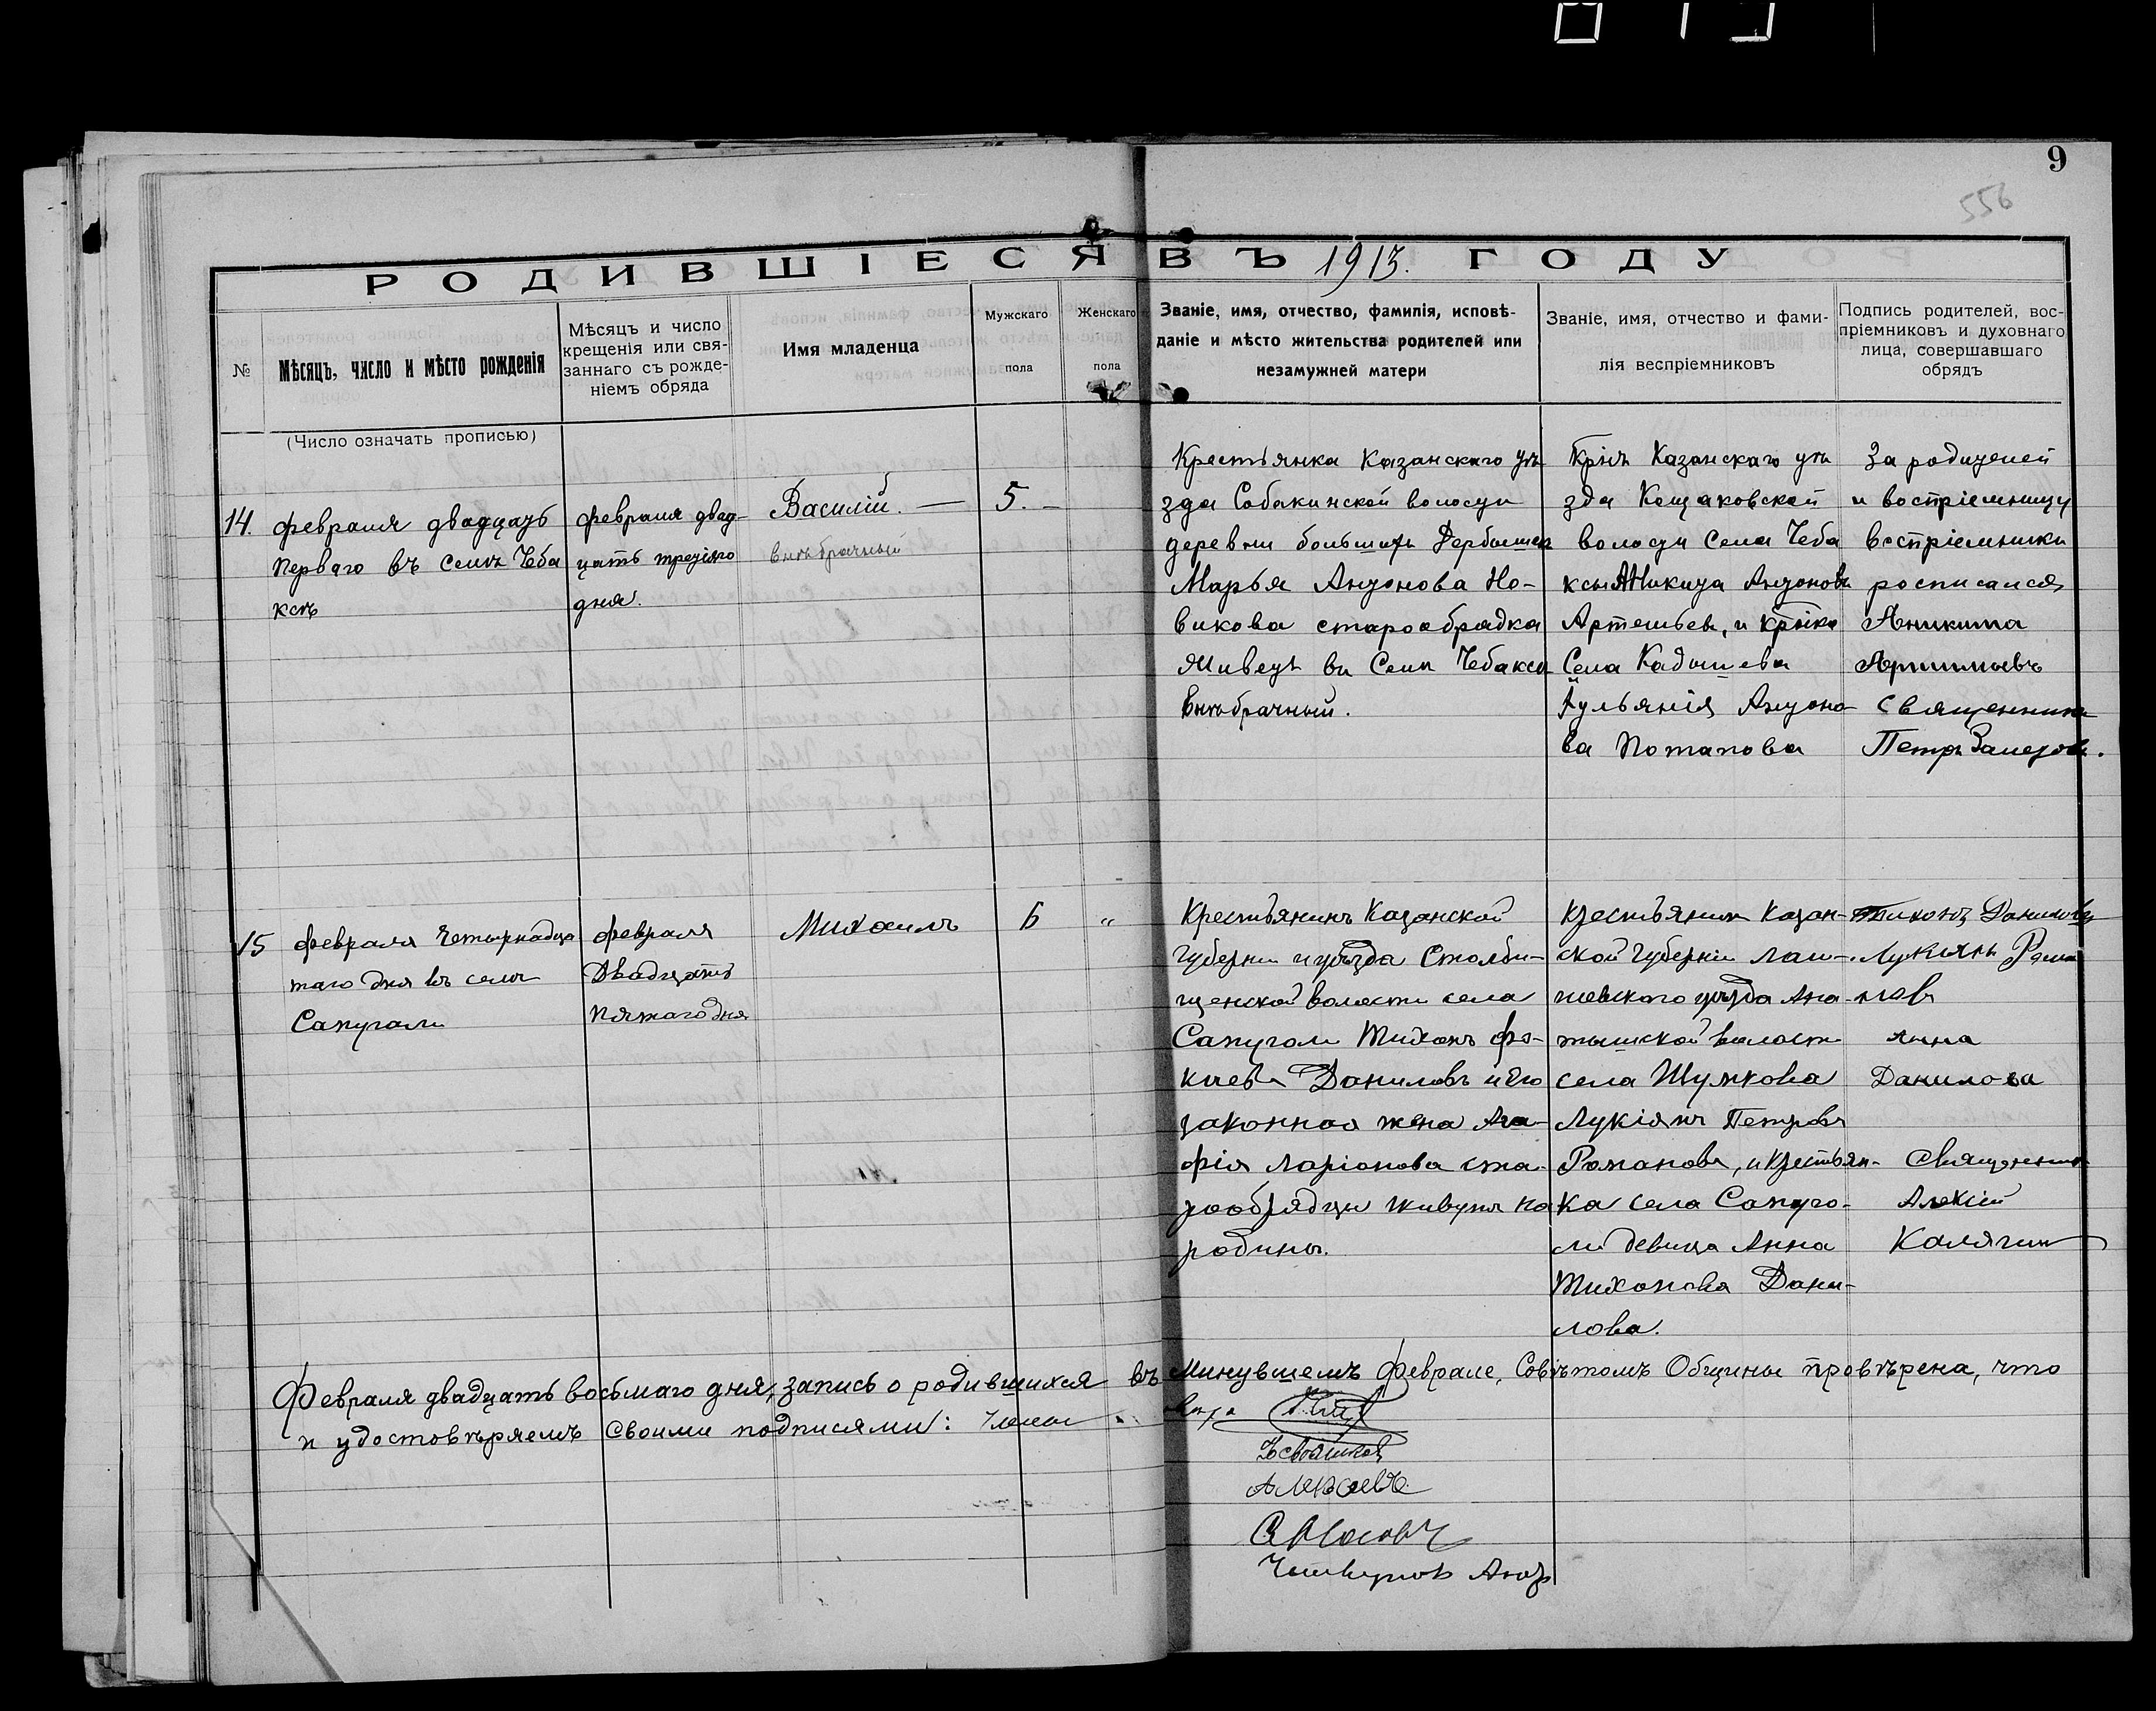 9
556
РОДИВШІЕСЯ ВЪ 1913. ГОДУ
№
Мѣсяцъ, число и мѣсто рожденія
Мѣсяцъ и число
крещенія или свя-
заннаго съ рожде-
ніемъ обряда
Имя младенца
Мужскаго
пола
Женскаго
пола
Званіе, имя, отчество, фамилія, исповѣ-
даніе и мѣсто жительства родителей или
незамужней матери
Званіе, имя, отчество и фами-
лія веспріемниковъ
Подпись родителей, вос-
пріемниковъ и духовнаго
лица, совершавшаго
обрядъ
(Число означать прописью)
14.
февраля двадцать
перваго въ селѣ Чеба
ксѣ
февраля двад-
цать третіяго
дня.
Василій. —
внѣбрачный
5. —
Крестьянка Казанскаго уѣ
зда Собакинской волости
деревни большихъ Дербышек
Марья Антонова Но-
викова старообрядка
живетъ въ Селѣ Чебакса
Внѣбрачный.
Крнъ Казанскаго уѣ
зда Кощаковской
волости Села Чеба
ксы Никита Антоновъ
Артемьев, и кр-нка
Села Кадышева
Іульянія Антоно
ва Потапова
За родителей
и воспріемницу
воспріемники
росписался
Аникита
Священник
Петръ Залетов.
15
февраля Четырнадца
таго дня въ селѣ
Сапугали
февраля
Двадцать
пятаго дня
Михаилъ
6
"
Крестьянинъ Казанской
губерніи и уѣзда Столби-
щенской волости села
Сапуголи Тихонъ Фо-
кіевъ Даниловъ и его
законная жена Ага-
фія Ларіонова ста-
рообрядцы живутъ на
родинѣ.
Крестьянин Казан-
ской Губерніи Лаи-
шевскаго уѣзда Ана-
тышской волости
села Шумкова
Лукіянъ Петровъ
Романовъ, и Крестьян-
ка села Сапуго-
ли девица Анна
Тихонова Дани-
лова.
Тихонъ Даниловъ
Лукьянъ Рома
новъ
Анна
Данилова
Священник
Алексій
Калягин
Февраля двадцать восьмаго дня, запись о родившихся въ минувшемъ Феврале, Совѣтомъ Общины провѣрена, что
и удостовѣряемъ своими подписями: члены
Алексѣевъ